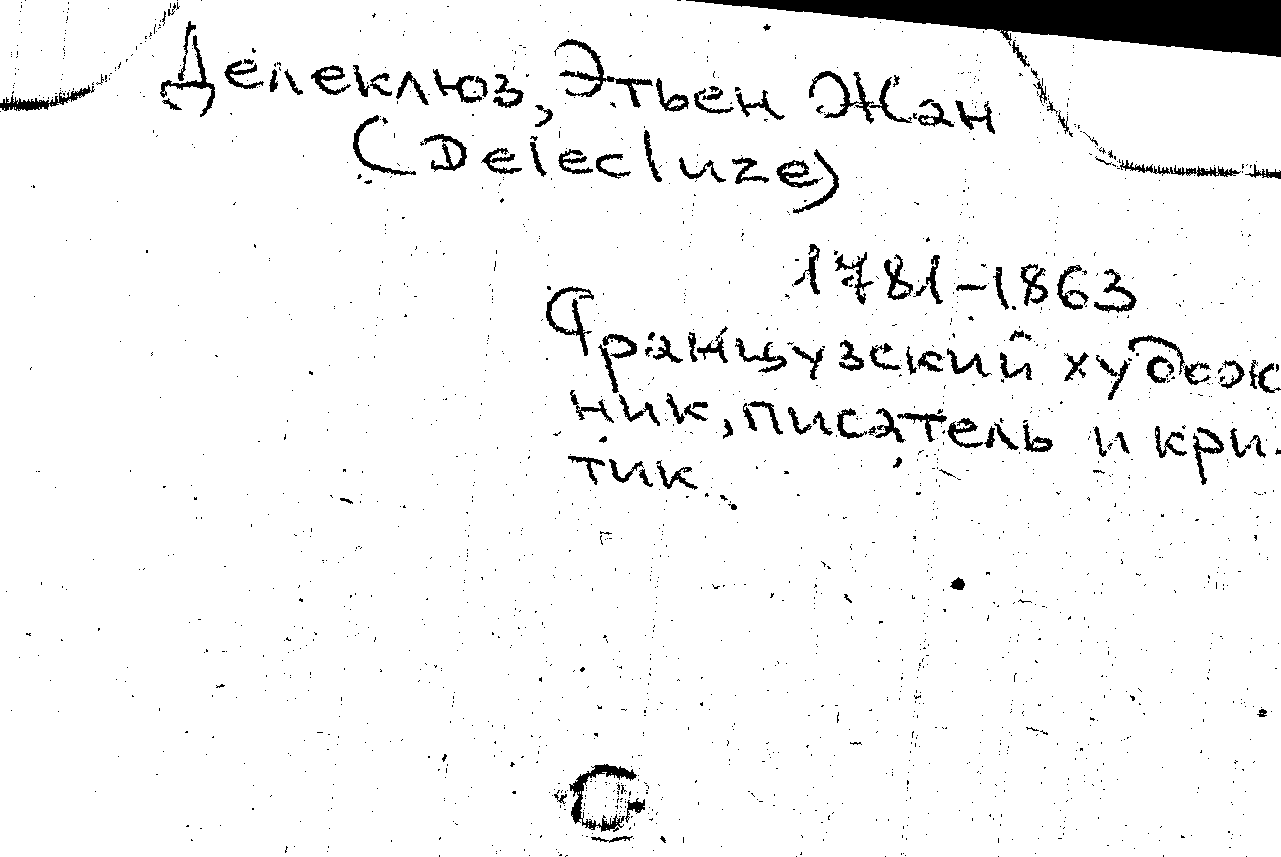 Делеклюз, Этьен Жан
(Delecluze)
1781-1863
Французский худож
ник, писатель и кри-
тик